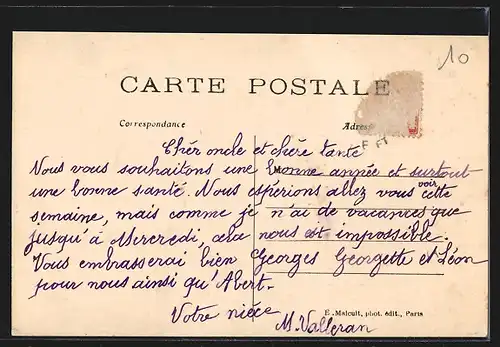 10
CARTE POSTALE
Correspondance
Chér oncle et chère tante
Nous vous souhaitons une bonne année et surtout
une bonne santé. Nous espérions allez vous voir cette
semaine, mais comme je n'ai de vacances que
jusqu'à Mercredi, cela nous est impossible.
Vous embrasserai bien Georges Georgette et Léon
pour nous ainsi qu'Abert.
Votre nièce
M. Valleran
E. Malcuit, phot. édit., Paris